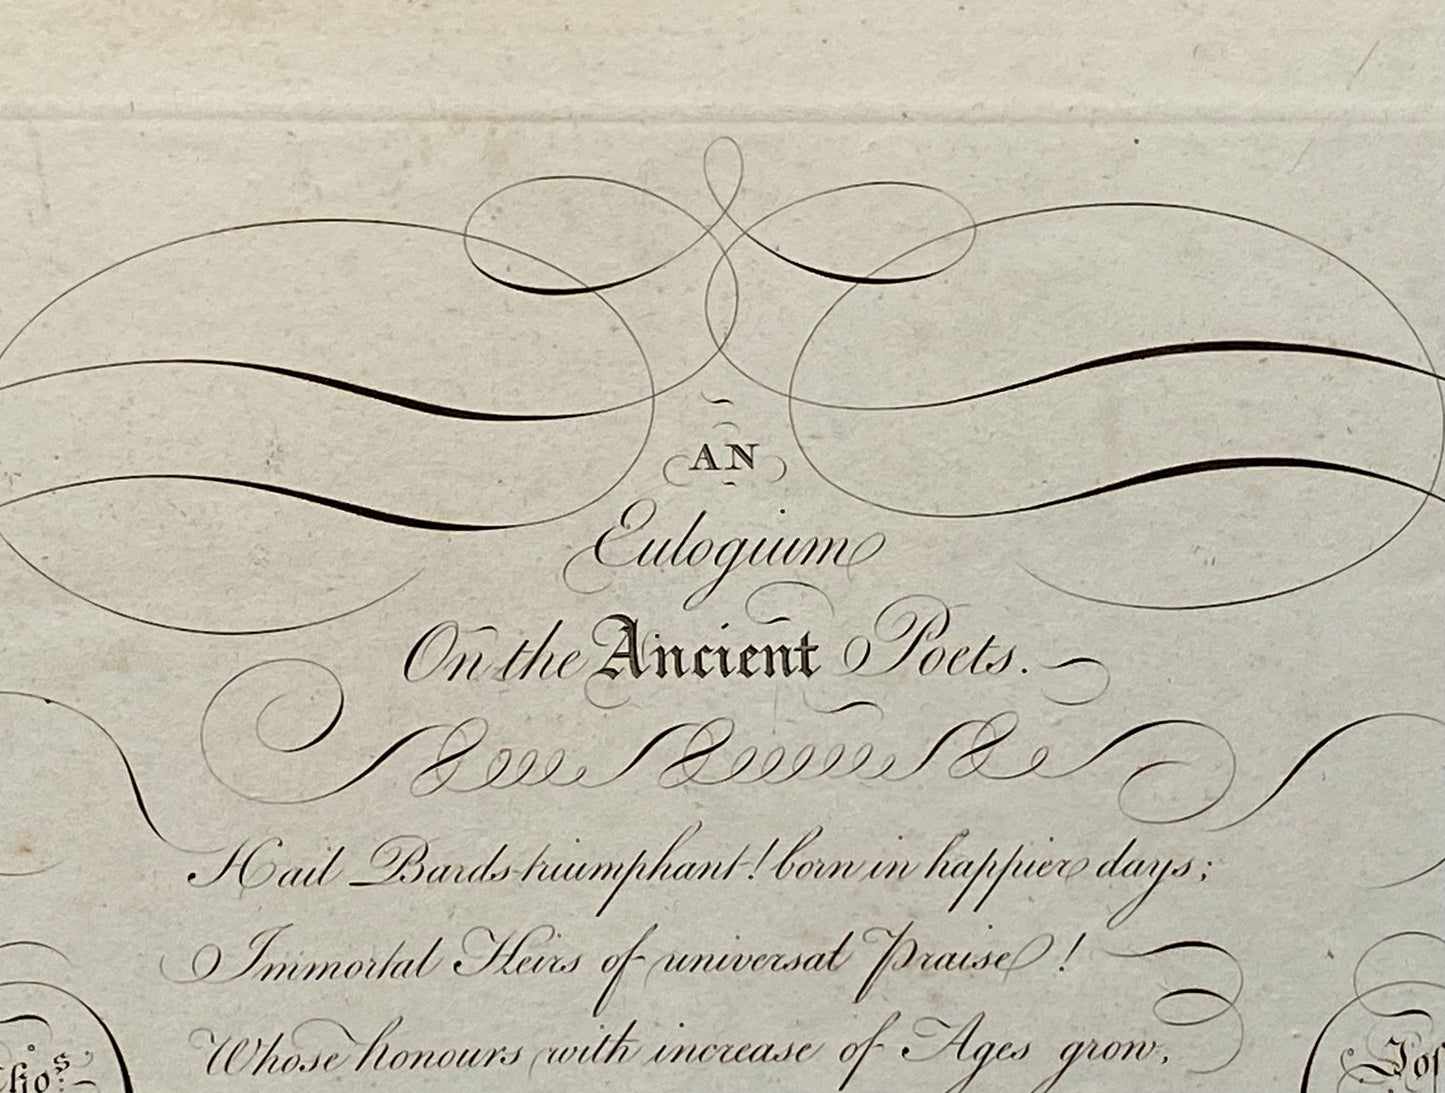 AN
Eulogium
On the Ancient Poets.
Hail Bards triumphant! born in happier days;
Immortal Heirs of universal Praise!
Whose honours with increase of Ages grow,